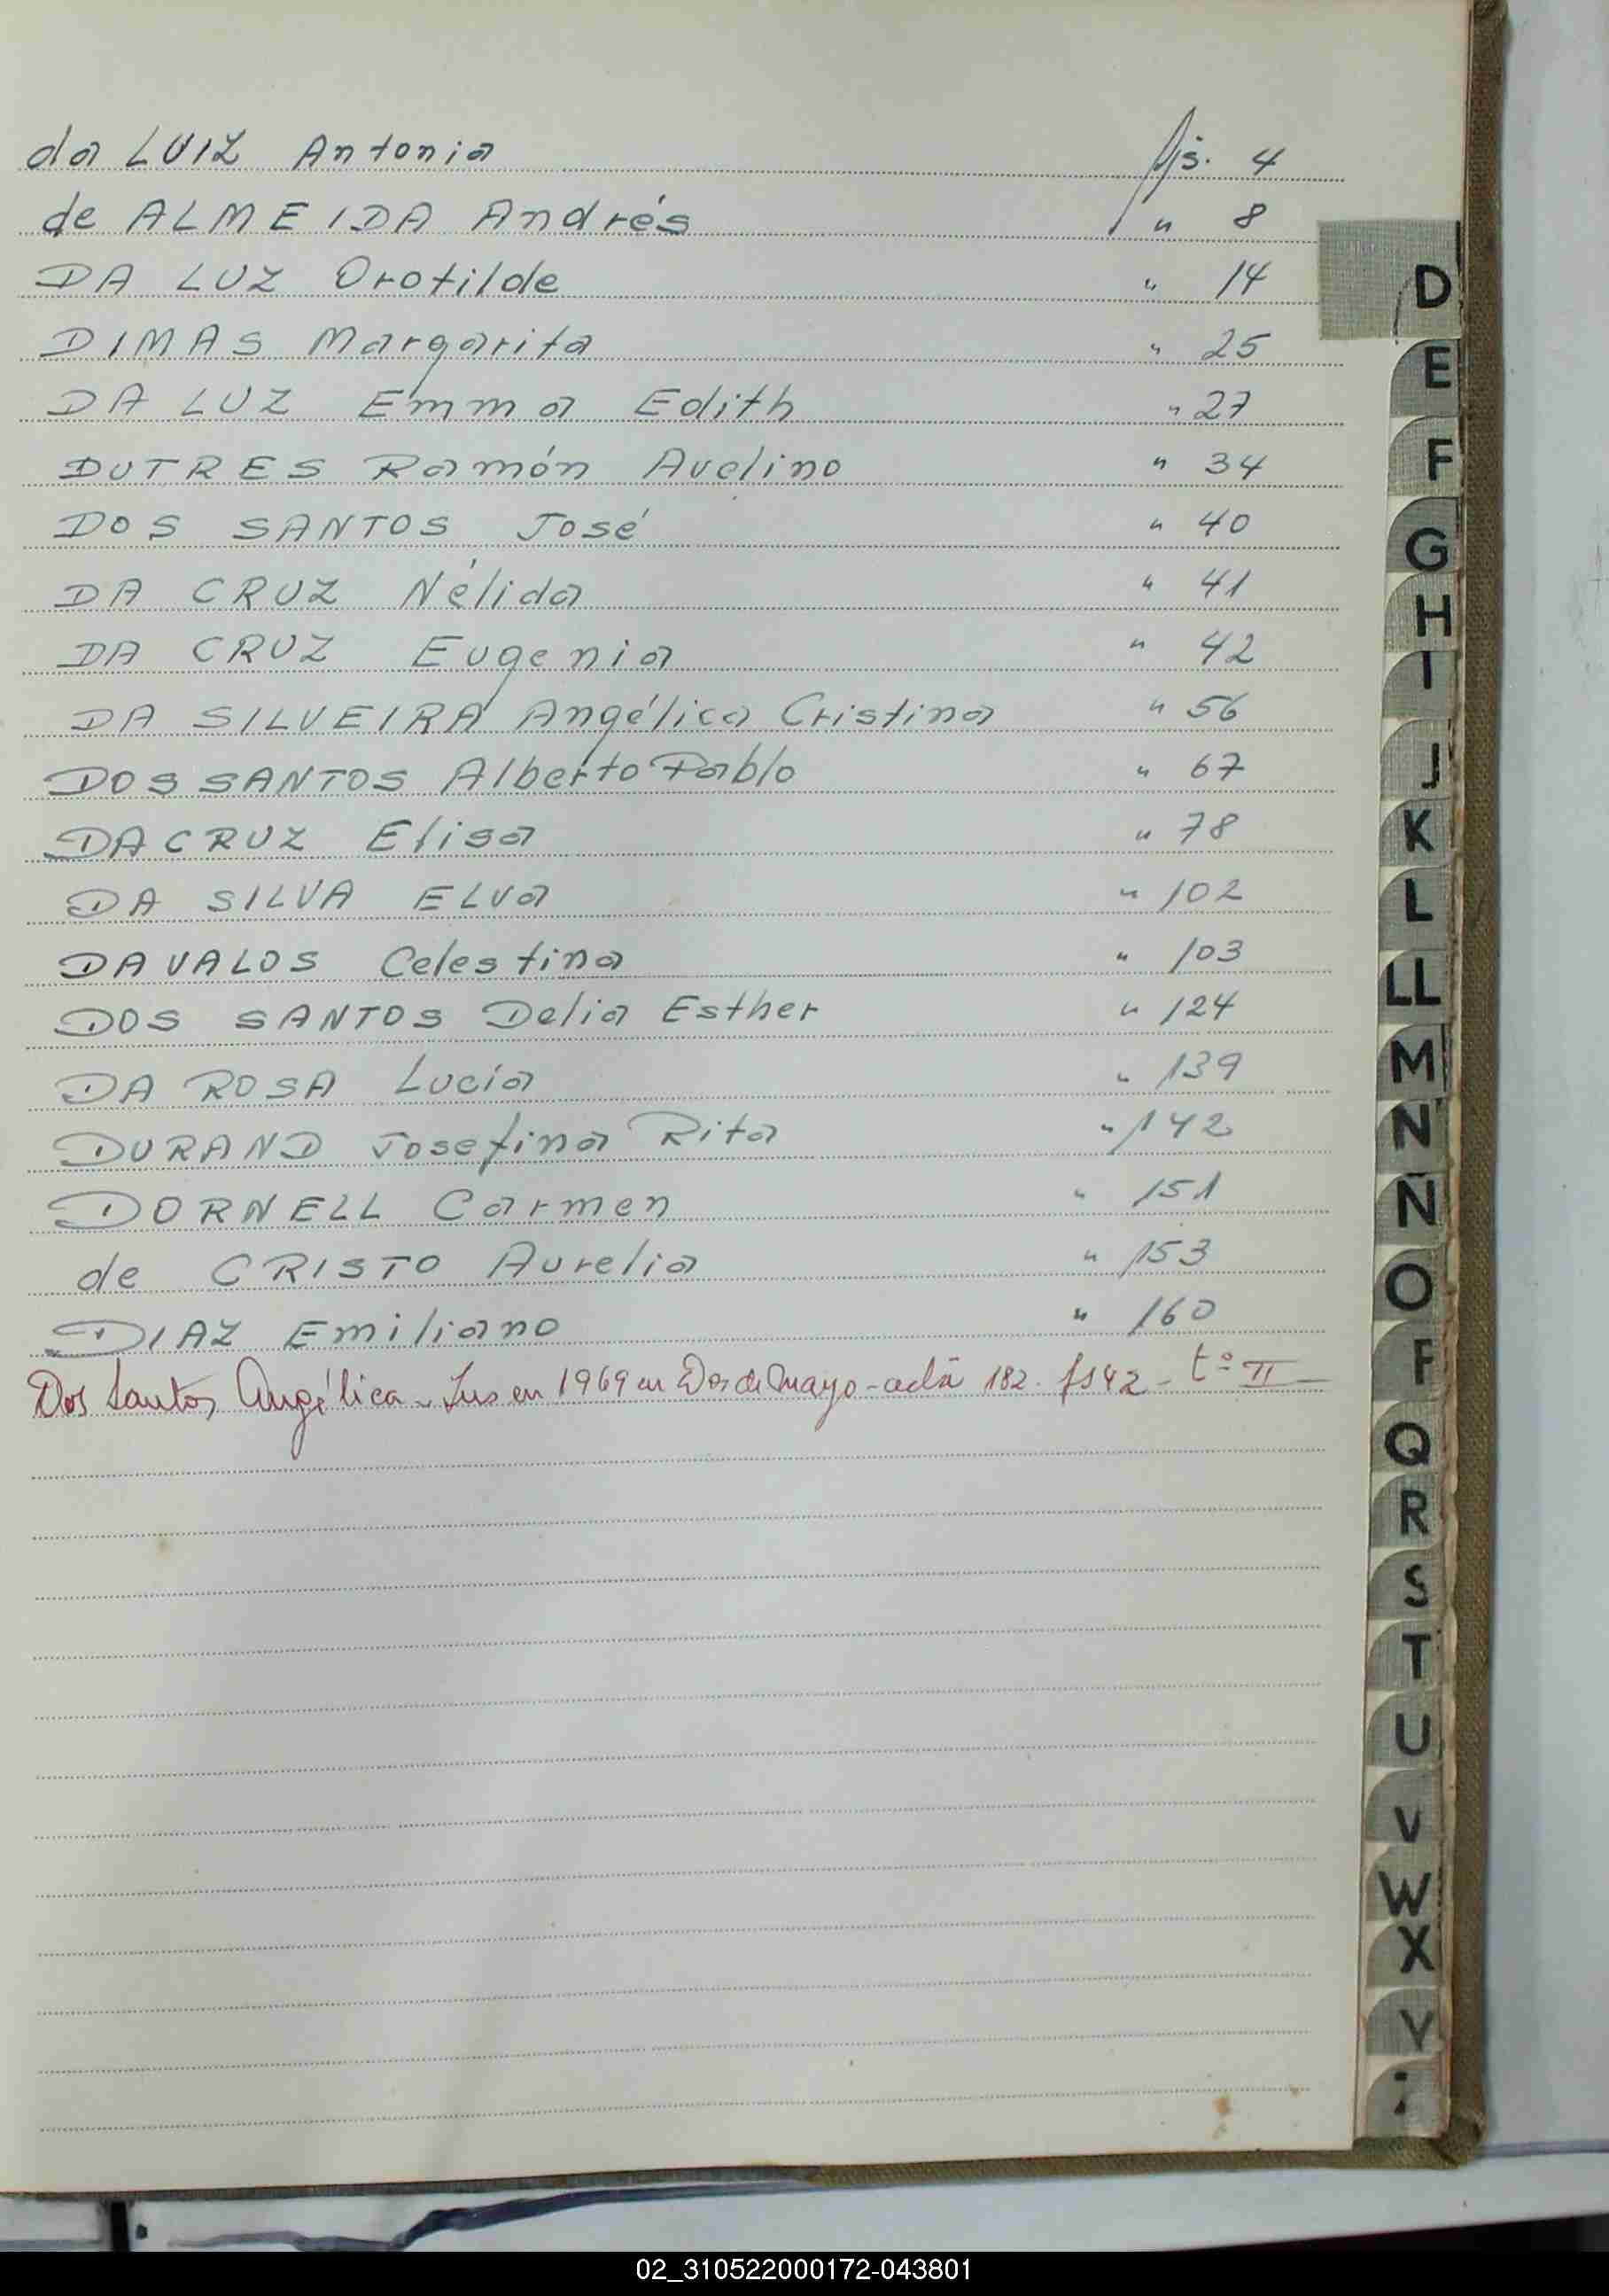 da LUIZ Antonia fjs. 4
de ALMEIDA Andrés " 8
DA LUZ Orotilde " 14
DIMAS Margarita " 25
DA LUZ Emma Edith " 27
DUTRES Ramón Avelino " 34
DOS SANTOS José " 40
DA CRUZ Nélida " 41
DA CRUZ Eugenia " 42
DA SILVEIRA Angélica Cristina " 56
DOS SANTOS Alberto Pablo " 67
DA CRUZ Elisa " 78
DA SILVA ELVA " 102
DAVALOS Celestina " 103
DOS SANTOS Delia Esther " 124
DA ROSA Lucía " 139
DURAND Josefina Rita " 142
DORNELL Carmen " 151
de CRISTO Aurelia " 153
DIAZ Emiliano " 160
Dos Santos Angélica - Ins en 1969 en Dos de Mayo - acta 182. fs 42 - tº II -
D
E
F
G
H
I
J
K
L
LL
M
N
Ñ
O
P
Q
R
S
T
U
V
W
X
Y
02_310522000172-043801